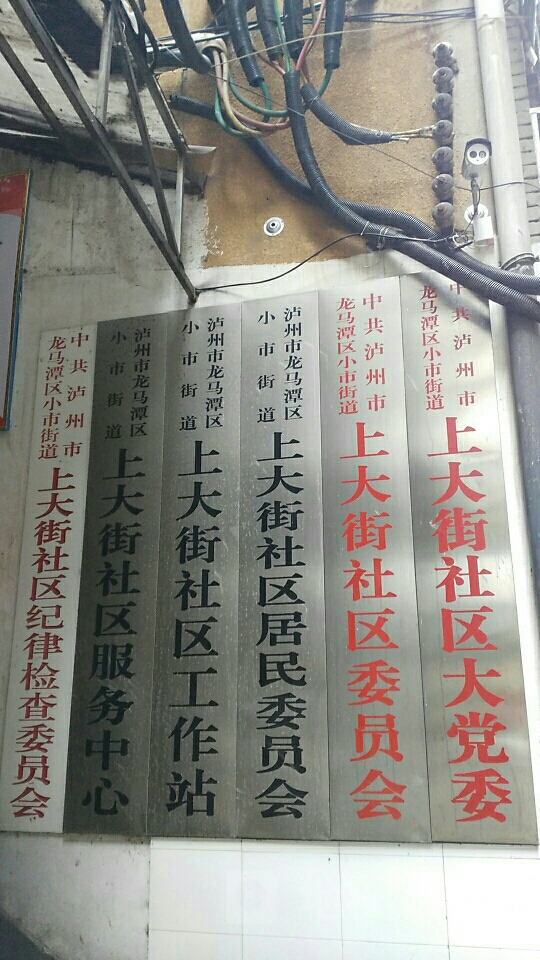 中共泸州市
龙马潭区小市街道
上大街社区大党委
中共泸州市
龙马潭区小市街道
上大街社区委员会
泸州市龙马潭区
小市街道
上大街社区居民委员会
泸州市龙马潭区
小市街道
上大街社区工作站
泸州市龙马潭区
小市街道
上大街社区服务中心
中共泸州市
龙马潭区小市街道
上大街社区纪律检查委员会